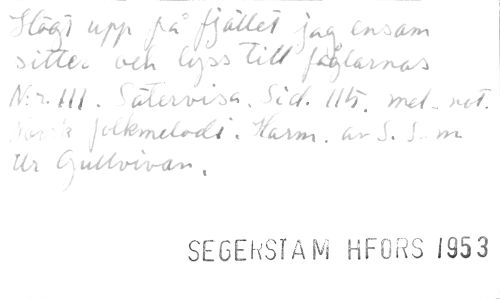 Högt upp på fjället jag ensam
sitter och lyss till fåglarnas
N:r 111. Sätervisa. Sid. 115. mel. not.
Norsk folkmelodi. Harm. av S. S-m
Ur Gullvivan.
SEGERSTAM HFORS 1953